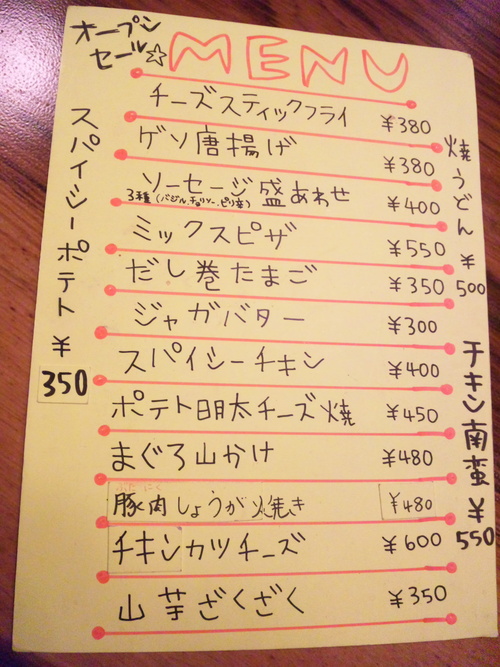 オープン
セール☆
MENU
チーズスティックフライ ¥380
ゲソ唐揚げ ¥380
ソーセージ盛あわせ ¥400
3種(バジル、チョリソー、ピリ辛)
ミックスピザ ¥550
だし巻たまご ¥350
ジャガバター ¥300
スパイシーチキン ¥400
ポテト明太チーズ焼 ¥450
まぐろ山かけ ¥480
ぶた にく
豚肉しょうが焼き ¥480
チキンカツチーズ ¥600
山芋ざくざく ¥350
スパイシーポテト ¥350
焼うどん ¥500
チキン南蛮 ¥550